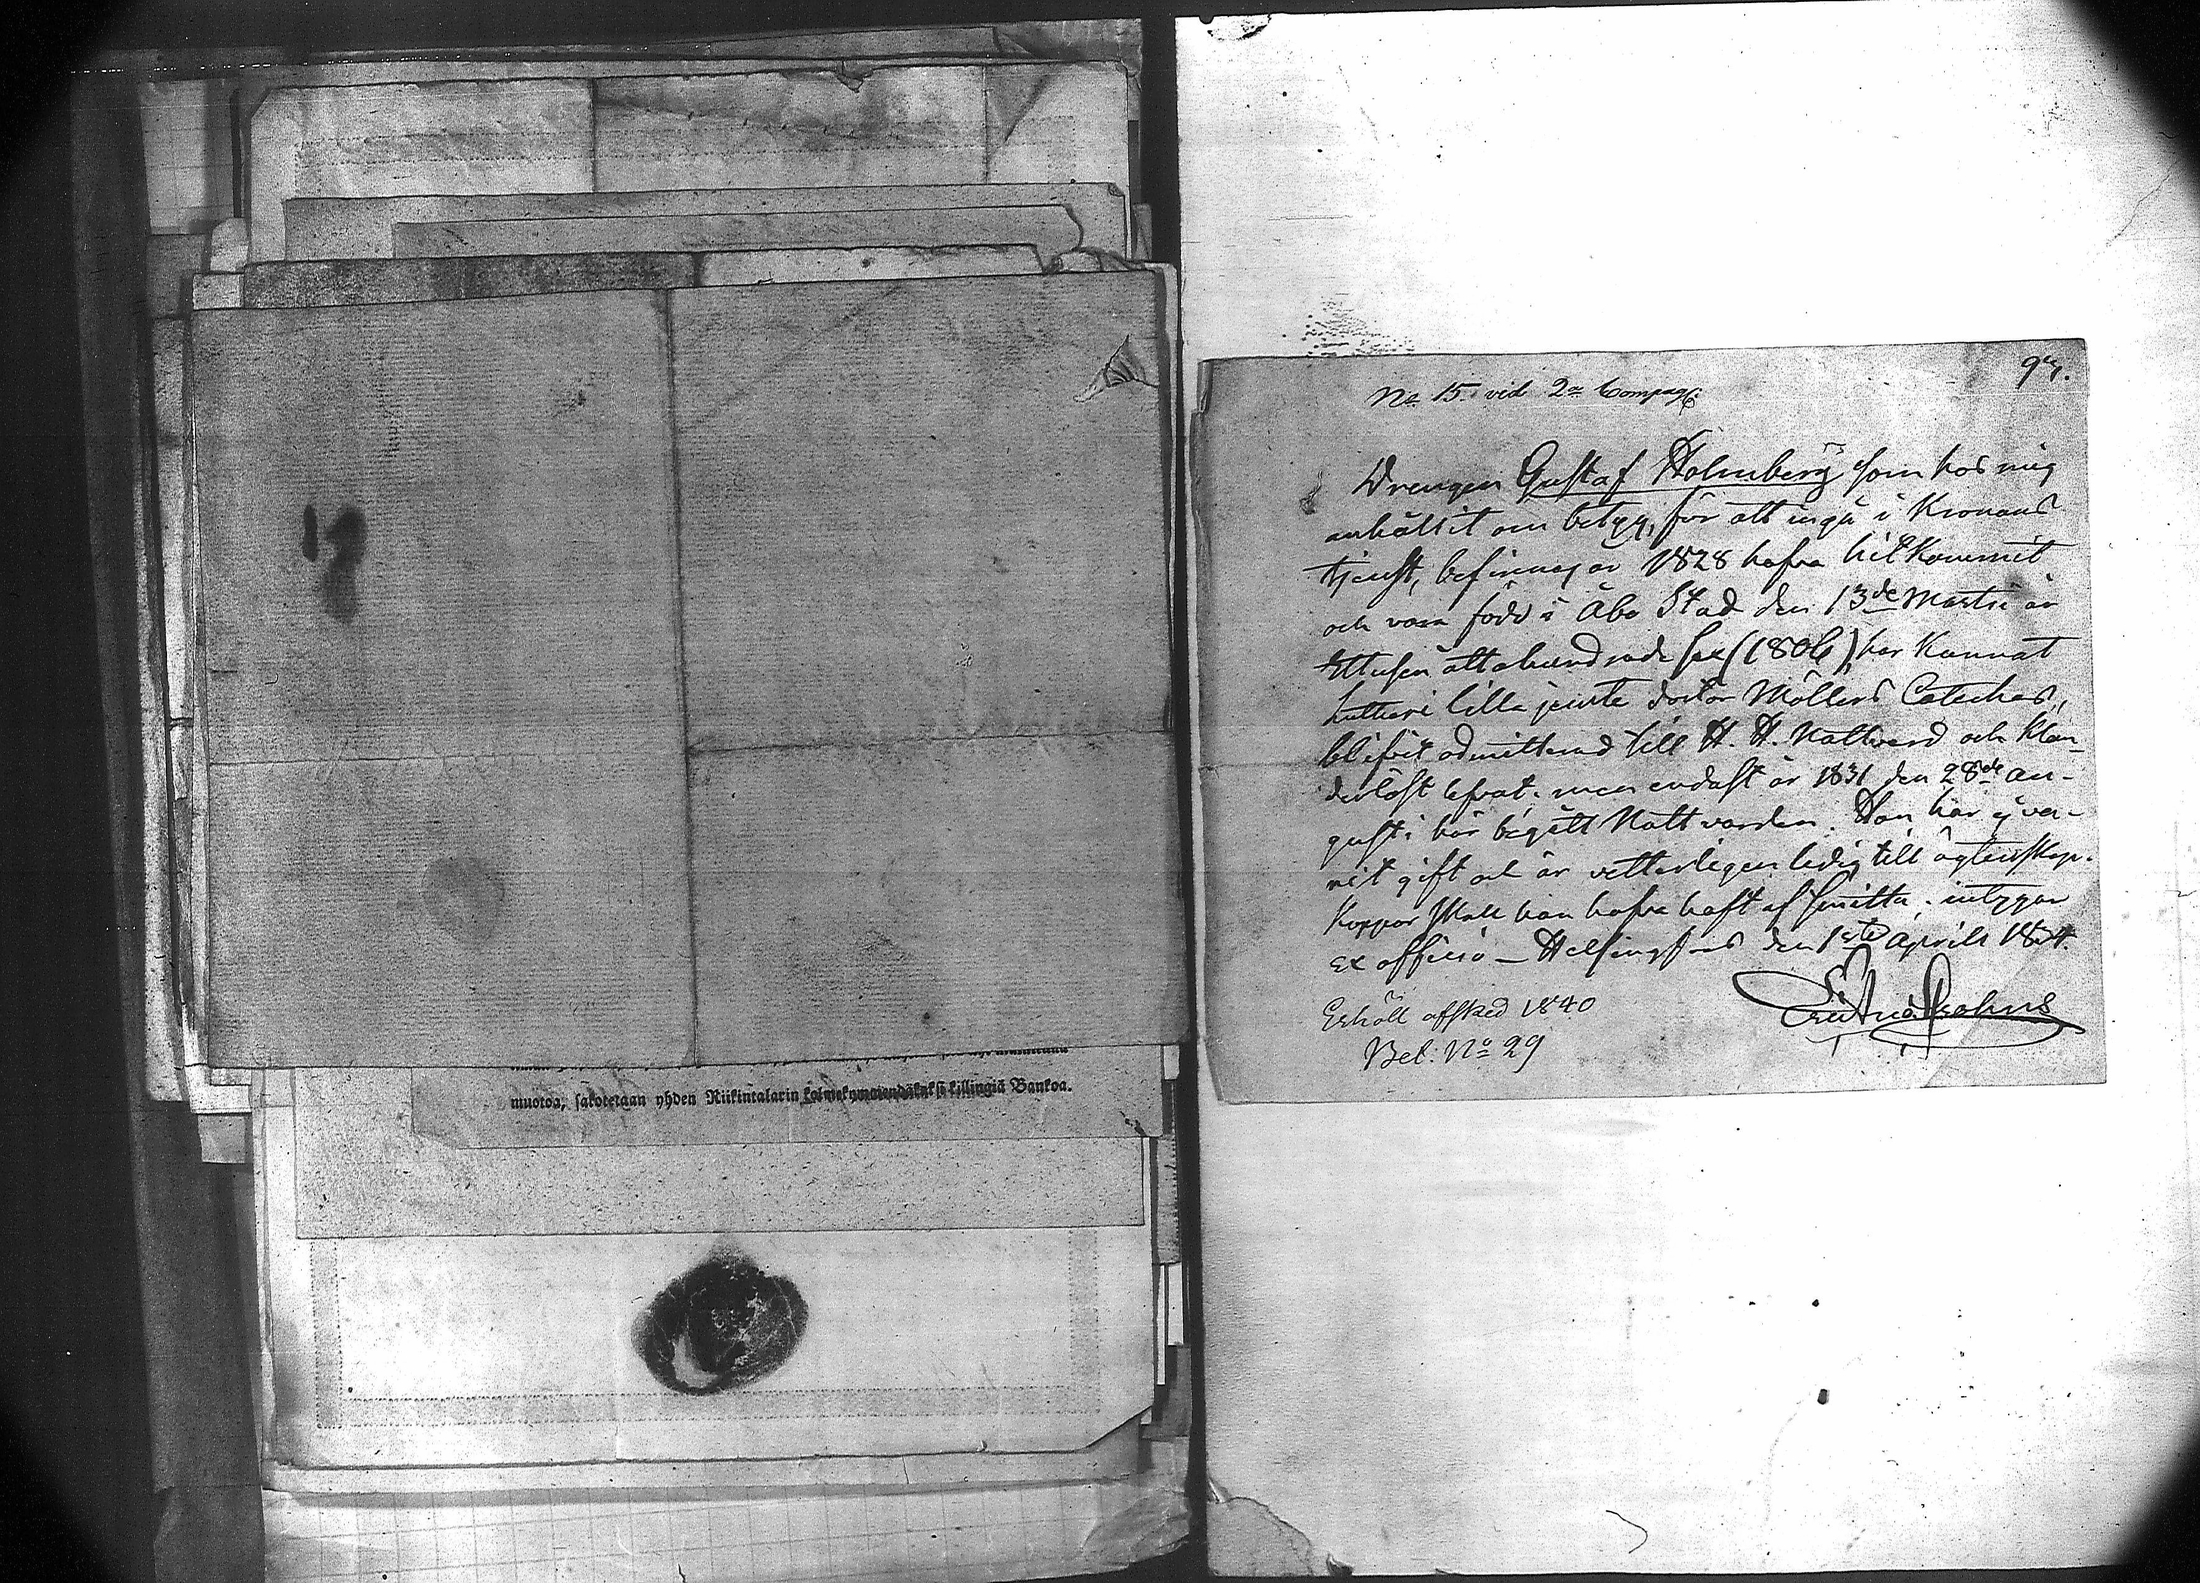 muotoa, sakotetaan yhden Riikintalarin kolmekymmendäkuksi killingiä Bankoa.
97.
No 15 vid 2a Compag:
Drengen Gustaf Holmberg som hos mig
anhållit om betyg, för att ingå i Kronans
tjenst, befinnes år 1828 hafva hitkommit
och vara född i Åbo Stad den 13de Martii år
Ettusen åttahundrade sex (1806), har kunnat
Lutheri lilla jemte doctor Möllers Cateches,
blifvit admitterad till H. H. Nattvard och klan-
derlöst lefvat, men endast år 1831 den 28de Au-
gusti här begått Nattvarden. Han har ej va-
rit gift och är vetterligen ledig till ägtenskap.
Koppor skall han hafva haft af smitta. intygar
ex officio — Helsingfors den 1ste Aprils
Erhöll afsked 1840
Bel: No 29